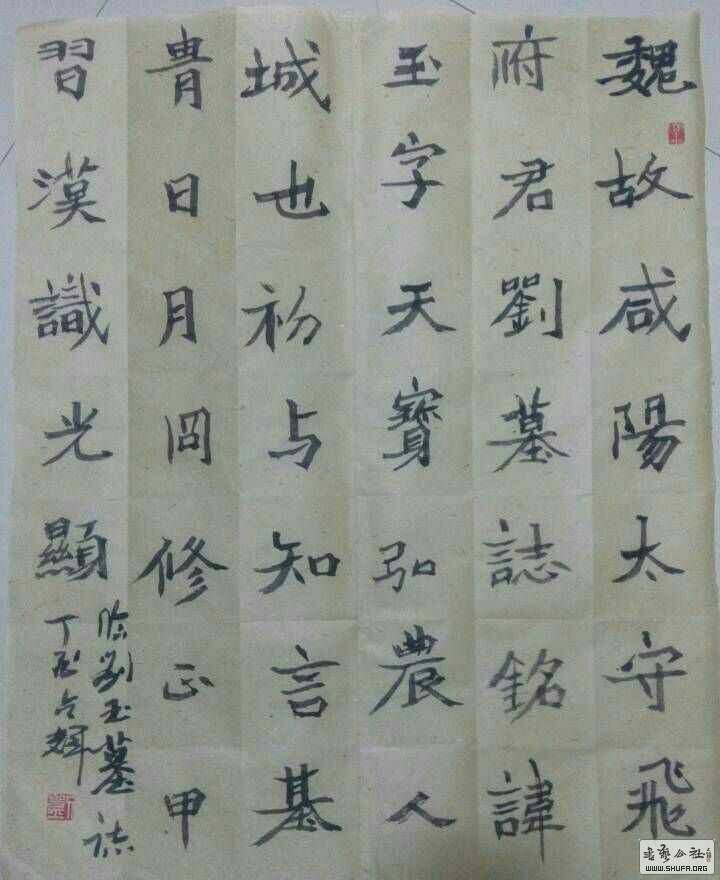 魏故咸陽太守飛
府君劉墓誌銘諱
玉字天寶弘農人
城也初与知言基
胄日月冏修正甲
習漢識光顯
臨劉玉墓誌
丁酉
書藝公社
WWW.SHUFA.ORG